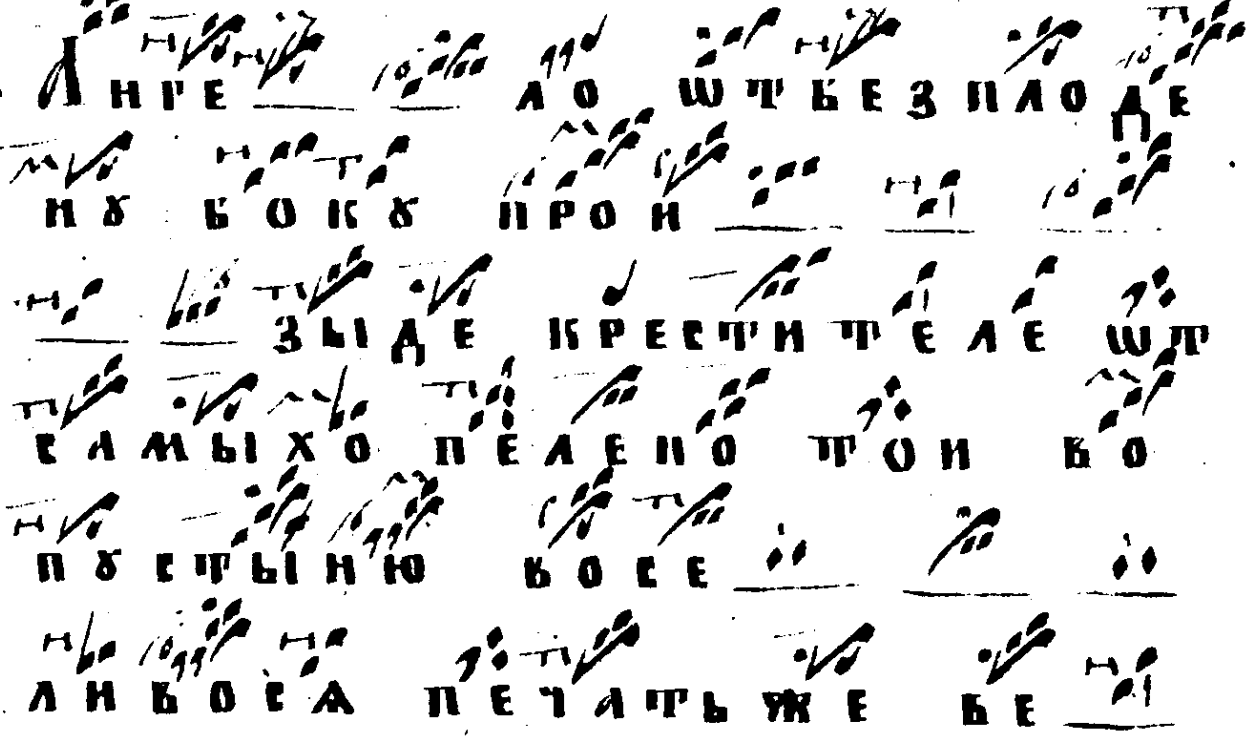 Анге ло ѿтъ безплоде
нꙋ бокꙋ прои
зыде крестителе ѿт
самыхо пелено той во
пꙋстыню восе
ливосѧ печать же бе